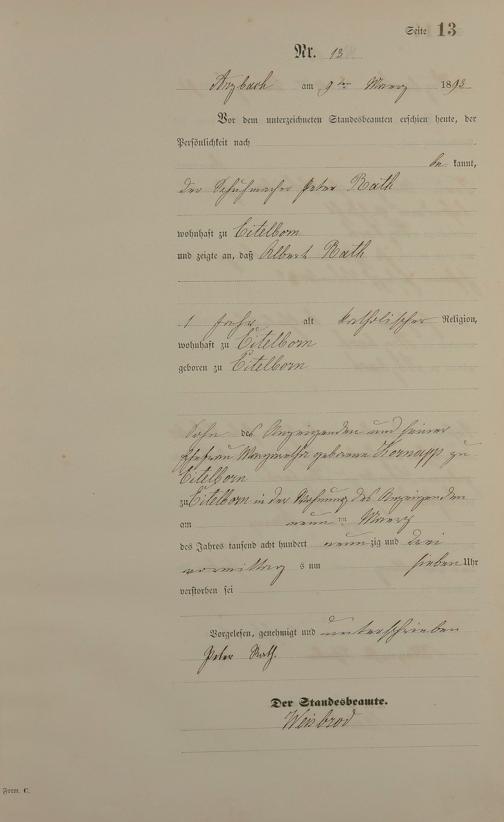 Seite 13
Nr. 13
Arzbach am 9ten Maerz 1893
Vor dem unterzeichneten Standesbeamten erschien heute, der
Persönlichkeit nach
be kannt,
der Schuhmacher Peter Räth
wohnhaft zu Eitelborn
und zeigte an, daß Albert Räth
1 Jahr alt katholischer Religion,
wohnhaft zu Eitelborn
geboren zu Eitelborn
Sohn des Anzeigenden und seiner
Ehefrau Margaretha geborene zu
Eitelborn
zu Eitelborn in der Wohnung des Anzeigenden
am neun ten Maerz
des Jahres tausend acht hundert neun zig und drei
vormittag s um sieben Uhr
verstorben sei
Vorgelesen, genehmigt und unterschrieben
Peter Räth.
Der Standesbeamte.
Weisbrod
Form. C.